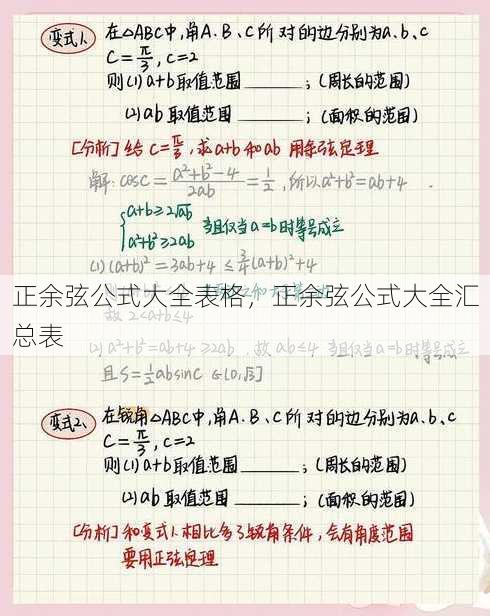 变式1、 在△ABC中,角A.B、C所对的边分别为a.b、c
C=π/3,c=2
则(1)a+b取值范围______;(周长的范围)
(2)ab取值范围______;(面积的范围)
[分析]给C=π/3,求a+b和ab 用余弦定理
解:cosC=(a²+b²-4)/2ab=1/2,所以a²+b²=ab+4.
{a+b≥2√ab
a²+b²≥2ab 当且仅当a=b时等号成立
(1)(a+b)²=3ab+4≤3/4(a+b)²+4
正余弦公式大全表格，正余弦公式大全汇
总表
故2<a+b≤4
(2)a²+b²=ab+4≥2ab.故ab≤4 当且仅当a=b时等号成立
且S=1/2absinC∈(0,√3]
变式2、 在锐角△ABC中,角A.B、C所对的边分别为a.b、c
C=π/3,c=2
则(1)a+b取值范围______;(周长的范围)
(2)ab取值范围______;(面积的范围)
[分析]和变式1.相比多了锐角条件,会有角度范围
要用正弦定理